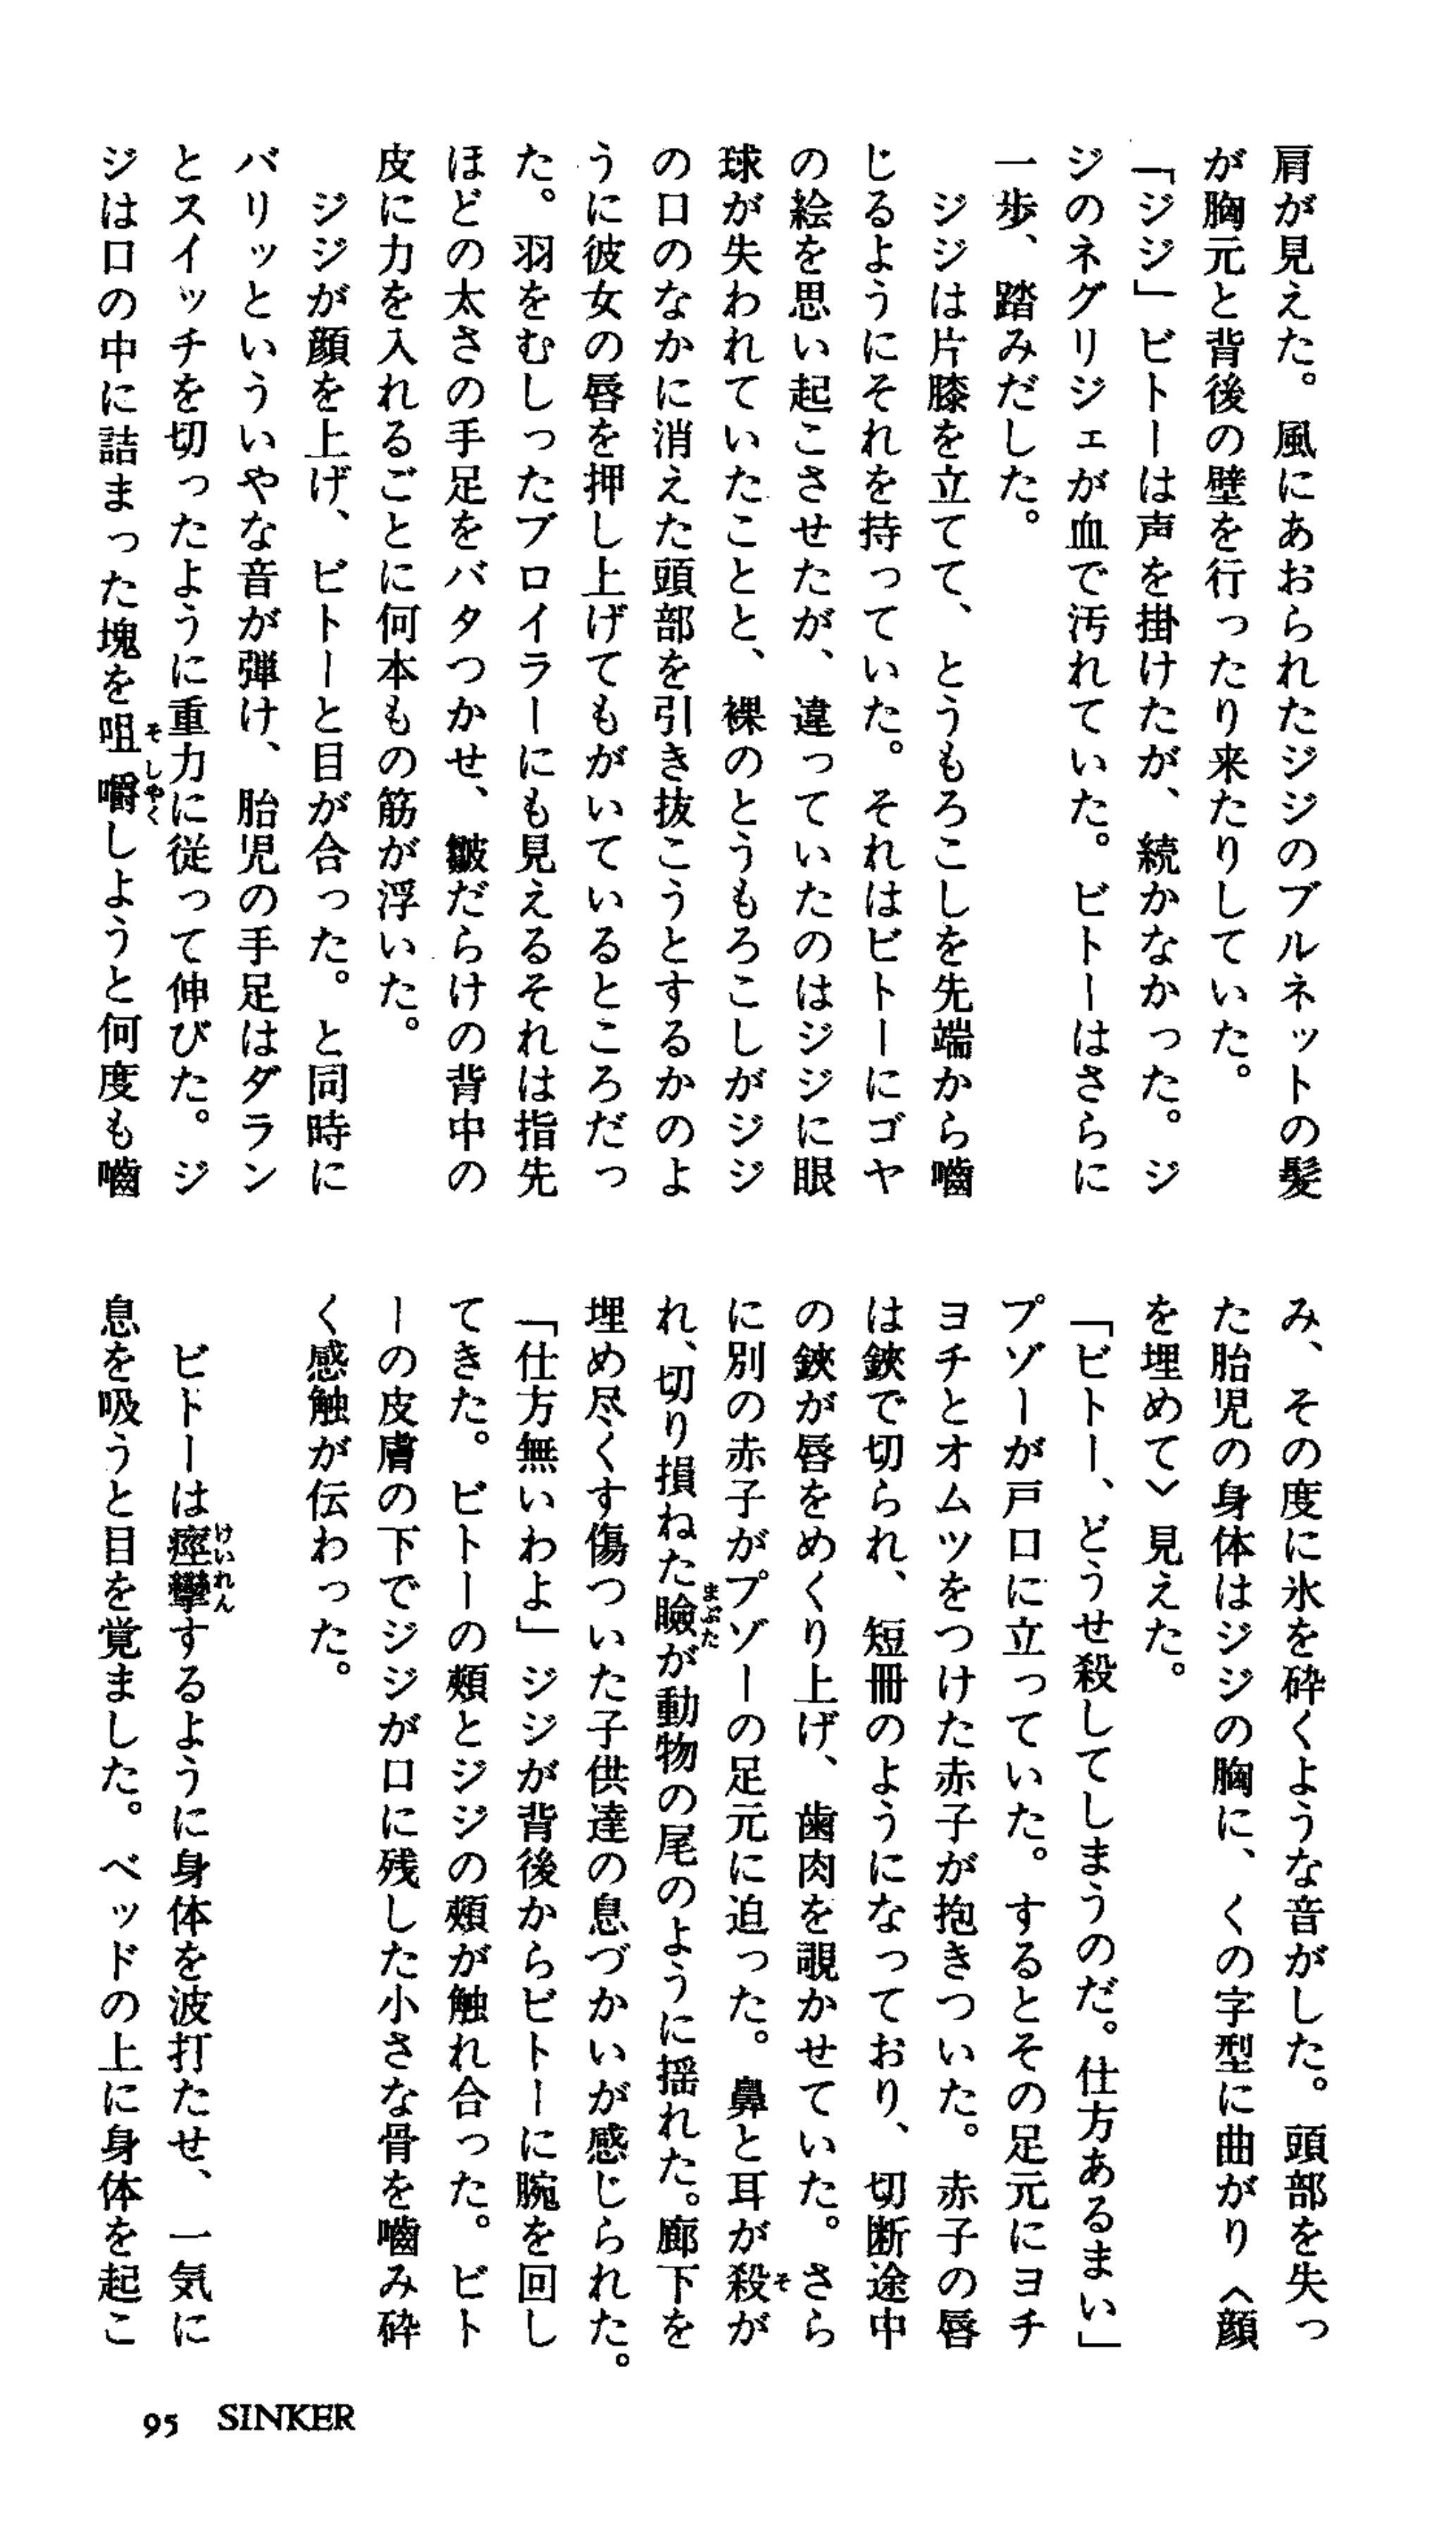 肩が見えた。風にあおられたジジのブルネットの髪
が胸元と背後の壁を行ったり来たりしていた。
「ジジ」ビトーは声を掛けたが、続かなかった。ジ
ジのネグリジェが血で汚れていた。ビトーはさらに
一歩、踏みだした。
　ジジは片膝を立てて、とうもろこしを先端から嚙
じるようにそれを持っていた。それはビトーにゴヤ
の絵を思い起こさせたが、違っていたのはジジに眼
球が失われていたことと、裸のとうもろこしがジジ
の口のなかに消えた頭部を引き抜こうとするかのよ
うに彼女の唇を押し上げてもがいているところだっ
た。羽をむしったブロイラーにも見えるそれは指先
ほどの太さの手足をバタつかせ、皺だらけの背中の
皮に力を入れるごとに何本もの筋が浮いた。
　ジジが顔を上げ、ビトーと目が合った。と同時に
バリッといういやな音が弾け、胎児の手足はダラン
とスイッチを切ったように重力に従って伸びた。ジ
ジは口の中に詰まった塊を咀嚼しようと何度も嚙
そしゃく
み、その度に氷を砕くような音がした。頭部を失っ
た胎児の身体はジジの胸に、くの字型に曲がり〈顔
を埋めて〉見えた。
「ビトー、どうせ殺してしまうのだ。仕方あるまい」
プゾーが戸口に立っていた。するとその足元にヨチ
ヨチとオムツをつけた赤子が抱きついた。赤子の唇
は鋏で切られ、短冊のようになっており、切断途中
の鋏が唇をめくり上げ、歯肉を覗かせていた。さら
に別の赤子がプゾーの足元に迫った。鼻と耳が殺が
そ
れ、切り損ねた瞼が動物の尾のように揺れた。廊下を
まぶた
埋め尽くす傷ついた子供達の息づかいが感じられた。
「仕方無いわよ」ジジが背後からビトーに腕を回し
てきた。ビトーの頰とジジの頰が触れ合った。ビト
ーの皮膚の下でジジが口に残した小さな骨を嚙み砕
く感触が伝わった。
　ビトーは痙攣するように身体を波打たせ、一気に
けいれん
息を吸うと目を覚ました。ベッドの上に身体を起こ
95 SINKER